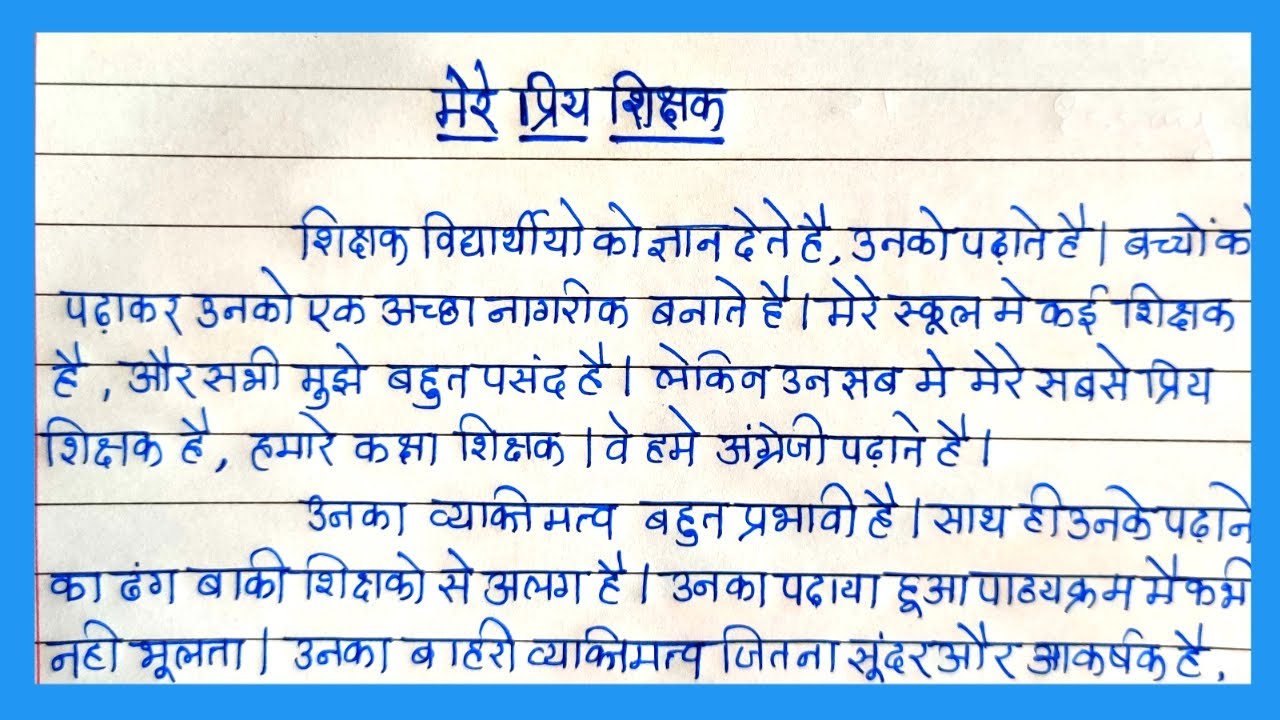 मेरे प्रिय शिक्षक
शिक्षक विद्यार्थीयो को ज्ञान देते है, उनको पढ़ाते है। बच्चों के
पढ़ाकर उनको एक अच्छा नागरीक बनाते है। मेरे स्कूल मे कई शिक्षक
है, और सभी मुझे बहुत पसंद है। लेकिन उन सब मे मेरे सबसे प्रिय
शिक्षक है, हमारे कक्षा शिक्षक। वे हमे अंग्रेजी पढ़ाते है।
उनका व्यक्तिमत्व बहुत प्रभावी है। साथ ही उनके पढ़ाने
का ढंग बाकी शिक्षको से अलग है। उनका पढ़ाया हूआ पाठ्यक्रम मै कभी
नही भूलता। उनका बाहरी व्यक्तिमत्व जितना सूंदर और आकर्षक है,